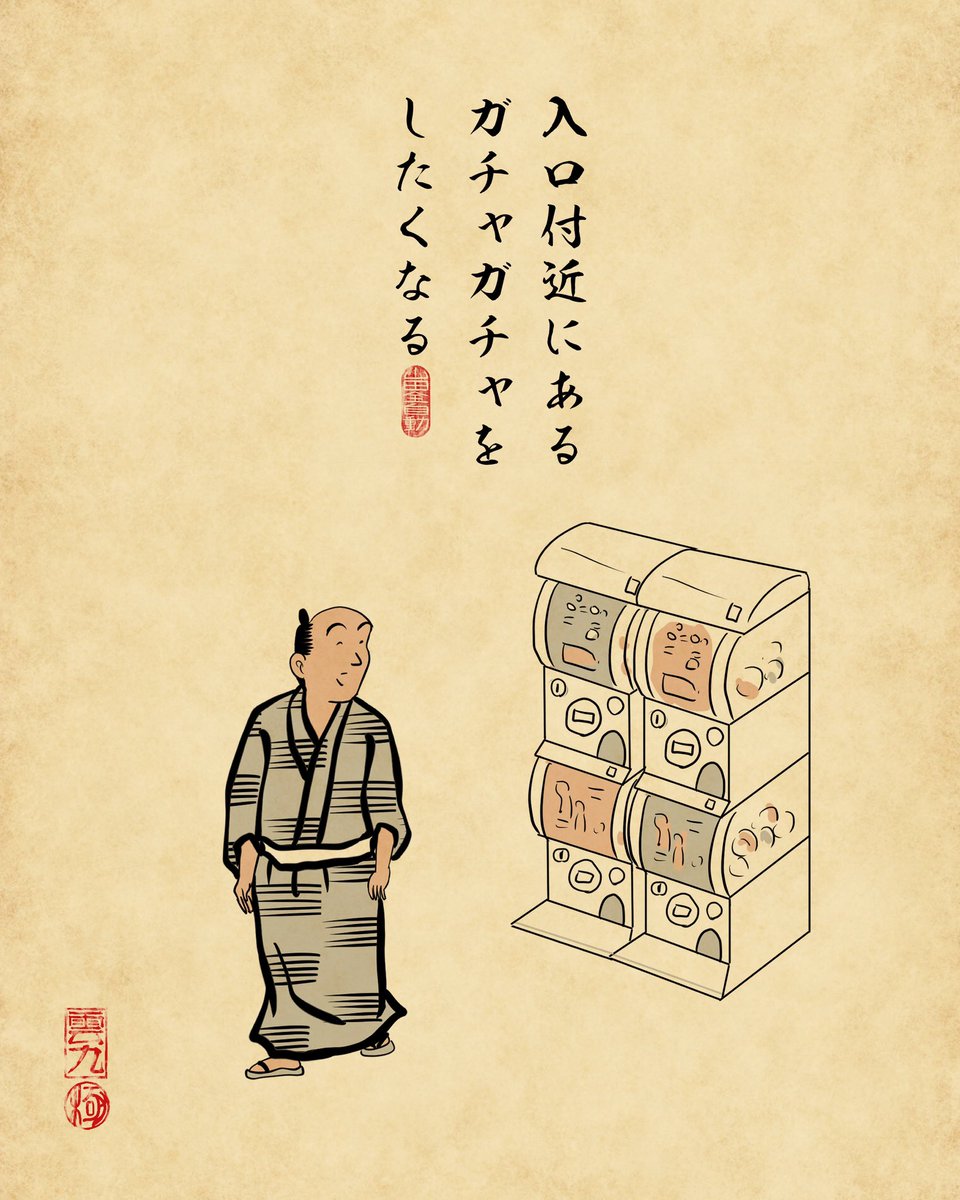 入口付近にある
ガチャガチャを
したくなる